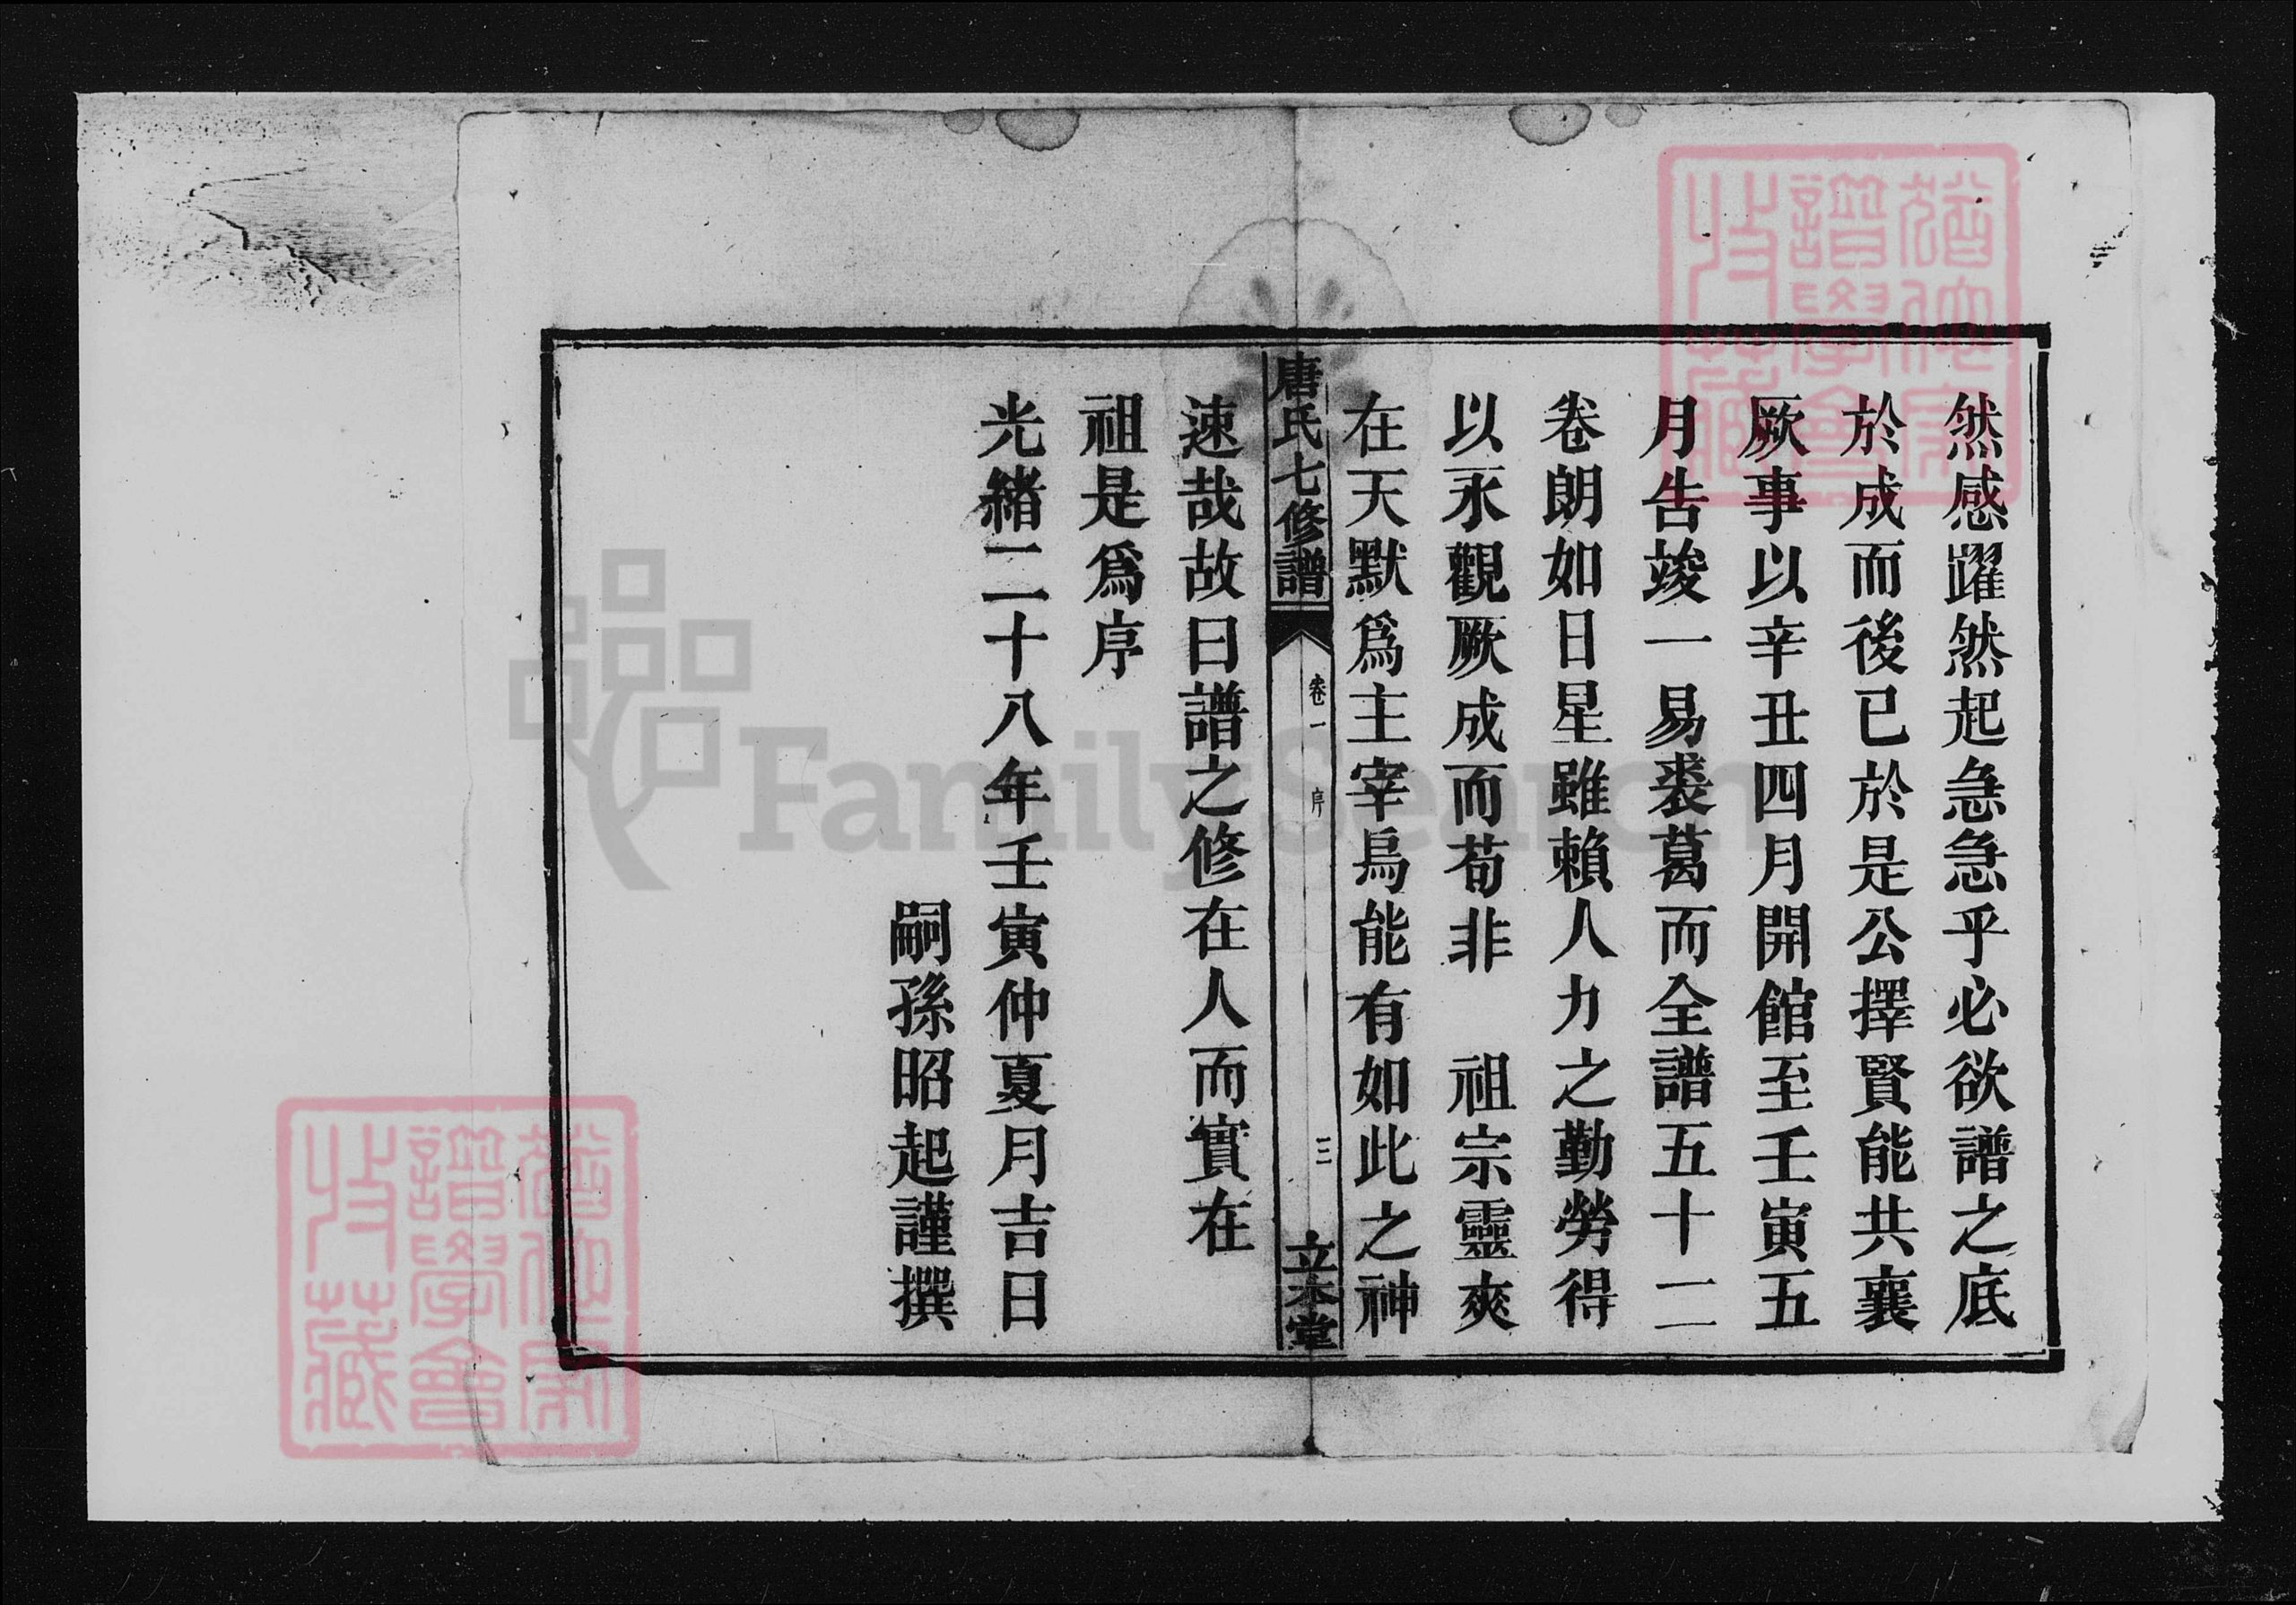 然感躍然起急急乎必欲譜之底
於成而後已於是公擇賢能共襄
厥事以辛丑四月開館至壬寅五
月告竣一易裘葛而全譜五十二
卷朗如日星雖賴人力之勤勞得
以永觀厥成而苟非　祖宗靈爽
在天默爲主宰烏能有如此之神
唐氏七修譜　卷一　序　三　立本堂
速哉故曰譜之修在人而實在
祖是爲序
光緒二十八年壬寅仲夏月吉日
嗣孫昭起謹撰
FamilySearch